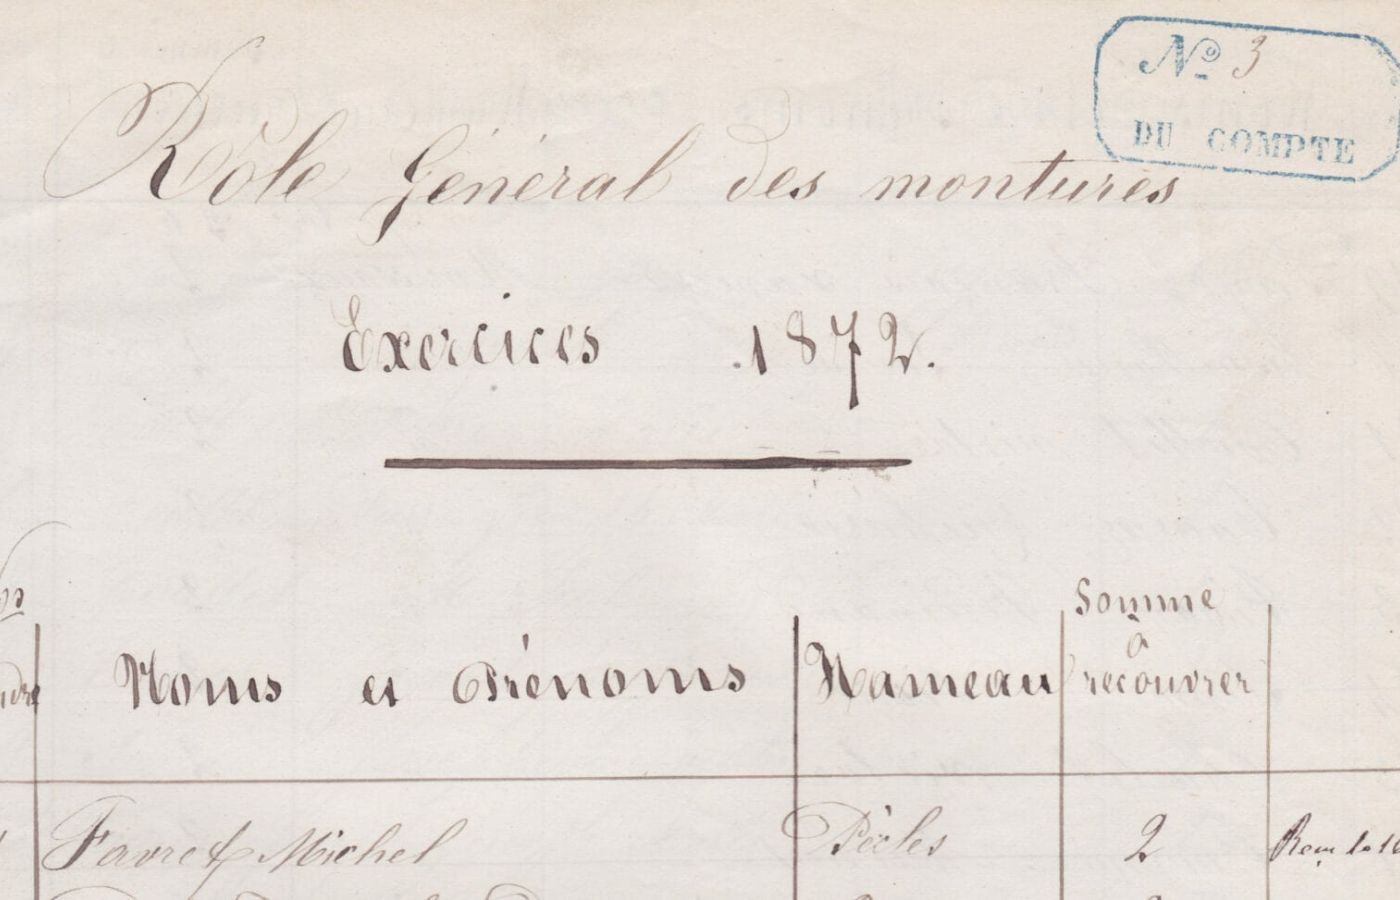 N° 3
DU COMPTE
Rôle Général des montures
Exercices 1872.
Noms et Prénoms
Hameau
Somme
à
recouvrer
Favret Michel
Pècles
2